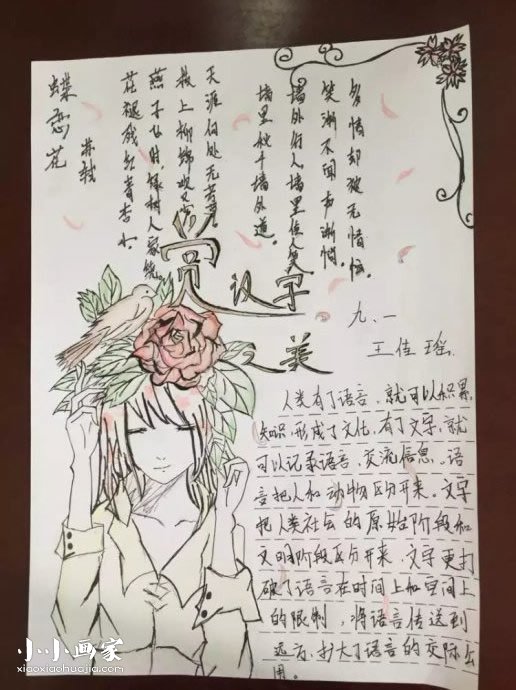 蝶恋花
苏轼
花褪残红青杏小。
燕子飞时,绿树人家绕。
枝上柳绵吹又少
天涯何处无芳草
墙里秋千墙外道。
墙外行人,墙里佳人笑
笑渐不闻声渐悄。
多情却被无情恼。
赏
汉字
之美
九、一
王佳瑶
人类有了语言,就可以积累
知识,形成了文化,有了文字,就
可以记录语言,交流信息。语
言把人和动物区分开来。文字
把人类社会的原始阶段和
文明阶段区分开来,文字更打
破了语言在时间上和空间上
的限制,将语言传送到
远方,扩大了语言的交际公
用。
小小画家
xiaoxiaohuajia.com